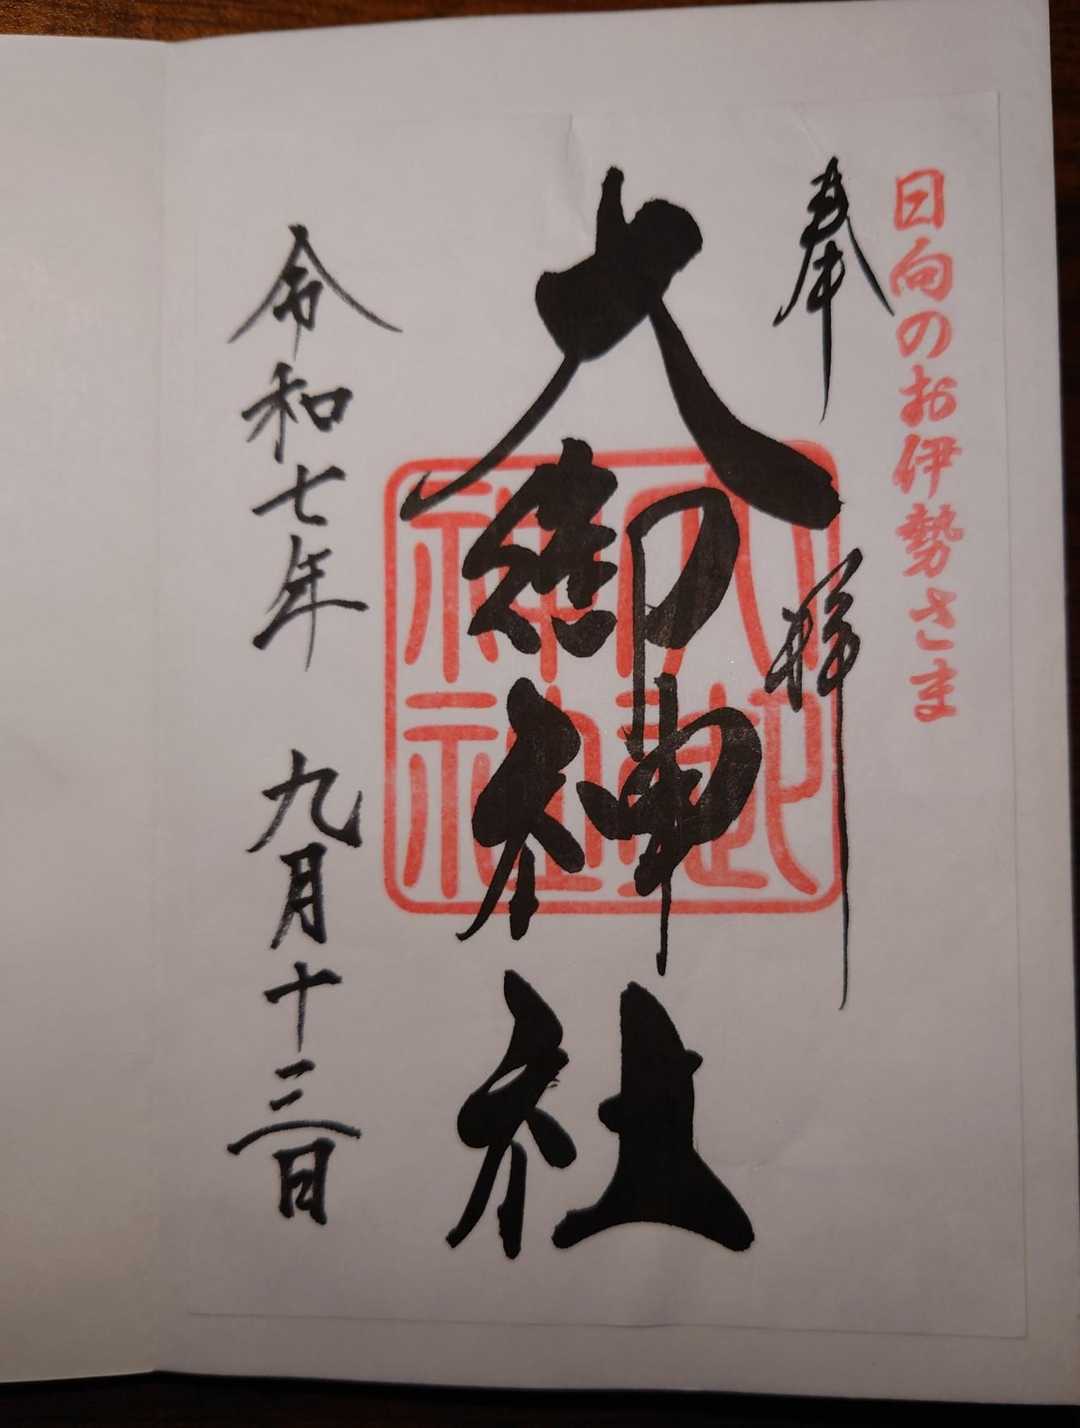 日向のお伊勢さま
奉拝
大御神社
大御神社
令和七年 九月十三日